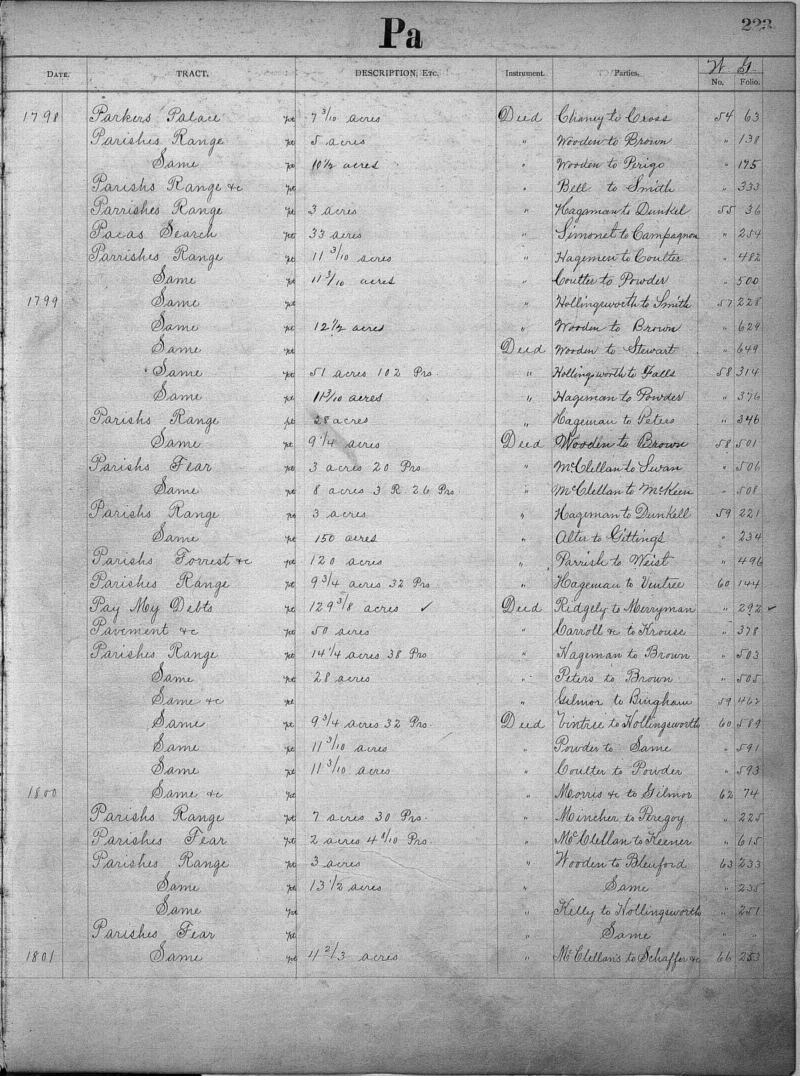 Pa
223
W G
DATE. TRACT. DESCRIPTION, ETC. Instrument. Parties. No. Folio.
1798 Parkers Palace pt 7 3/10 acres Deed Chaney to Cross 54 63
Parishes Range pt 5 acres " Wooden to Brown " 138
Same pt 10 1/2 acres " Wooden to Perigo " 175
Parishs Range &c pt " Bell to Smith " 333
Parrishes Range pt 3 acres " Hagaman to Dunkel 55 36
Pacas Search pt 33 acres " Simonet to Campagnon " 254
Parrishes Range pt 11 3/10 acres " Hagemen to Coulter " 482
Same pt 11 3/10 acres " Coulter to Powder " 500
1799 Same pt " Hollingsworth to Smith 57 228
Same pt 12 1/2 acres " Wooden to Brown " 624
Same pt Deed Wooden to Stewart " 649
Same pt 51 acres 102 Prs. " Hollingsworth to Falls 58 314
Same pt 11 3/10 acres " Hageman to Powder " 376
Parishs Range pt 28 acres " Hageman to Peters " 346
Same pt 9 1/4 acres Deed Wooden to Brown 58 501
Parishs Fear pt 3 acres 20 Prs " McClellan to Swan " 506
Same pt 8 acres 3 R 26 Prs. " McClellan to McKeen " 508
Parishs Range pt 3 acres " Hageman to Dunkell 59 221
Same pt 150 acres " Alter to Gittings " 234
Parishs Forrest &c pt 120 acres " Parrish to Weist " 496
Parishes Range pt 9 3/4 acres 32 Prs " Hageman to Vintree 60 144
Pay My Debts pt 129 3/8 acres ✓ Deed Ridgely to Merryman " 292 ✓
Pavement &c pt 50 acres " Carroll &c to Krouse " 378
Parishes Range pt 14 1/4 acres 38 Prs " Hageman to Brown " 503
Same pt 28 acres " Peters to Brown " 505
Same &c pt " Gilmor to Bingham 59 462
Same pt 9 3/4 acres 32 Prs. Deed Vintree to Hollingsworth 60 589
Same pt 11 3/10 acres " Powder to Same " 591
Same pt 11 3/10 acres " Coulter to Powder " 593
1800 Same &c pt " Morris &c to Gilmor 62 74
Parishs Range pt 7 acres 30 Prs. " Mincher to Peregoy " 225
Parishes Fear pt 2 acres 4 /10 Prs. " McClellan to Keener " 615
Parishes Range pt 3 acres " Wooden to Bleuford 63 233
Same pt 13 1/2 acres " Same " 235
Same pt " Kelly to Hollingsworth " 251
Parishes Fear pt " Same " "
1801 Same pt 4 2/3 acres " McClellan's to Schaffer &c 66 253